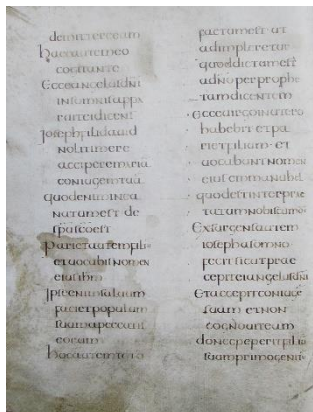 demitteream
haecautemeo
cogitante
Ecceangelusdni
insomnisappa
ruiteidicens
Iosephfilidauid
nolitimere
acciperemariã
coniugemtuã
quodeniminea
natumest de
spuscoest
Parietautemfiliũ
etuocabitnomen
eiusihm
Ipseenimsaluum
facietpopulum
suumapeccatis
eorum
hocautemtotũ
factumest ut
adimpleretur
quoddictumest
adnoperprophe
tamdicentem
Ecceuirgoinutero
habebit etpa
rietfilium et
uocabuntnomen
eius
quodestinterprae
tatumnobiscum
Exsurgensautem
iosephasomno
fecitsicutprae
cepiteiangelusdni
Etaccepitconiugẽ
suam etnon
cognouiteam
donecpeperitfiliũ
suumprimogenitũ